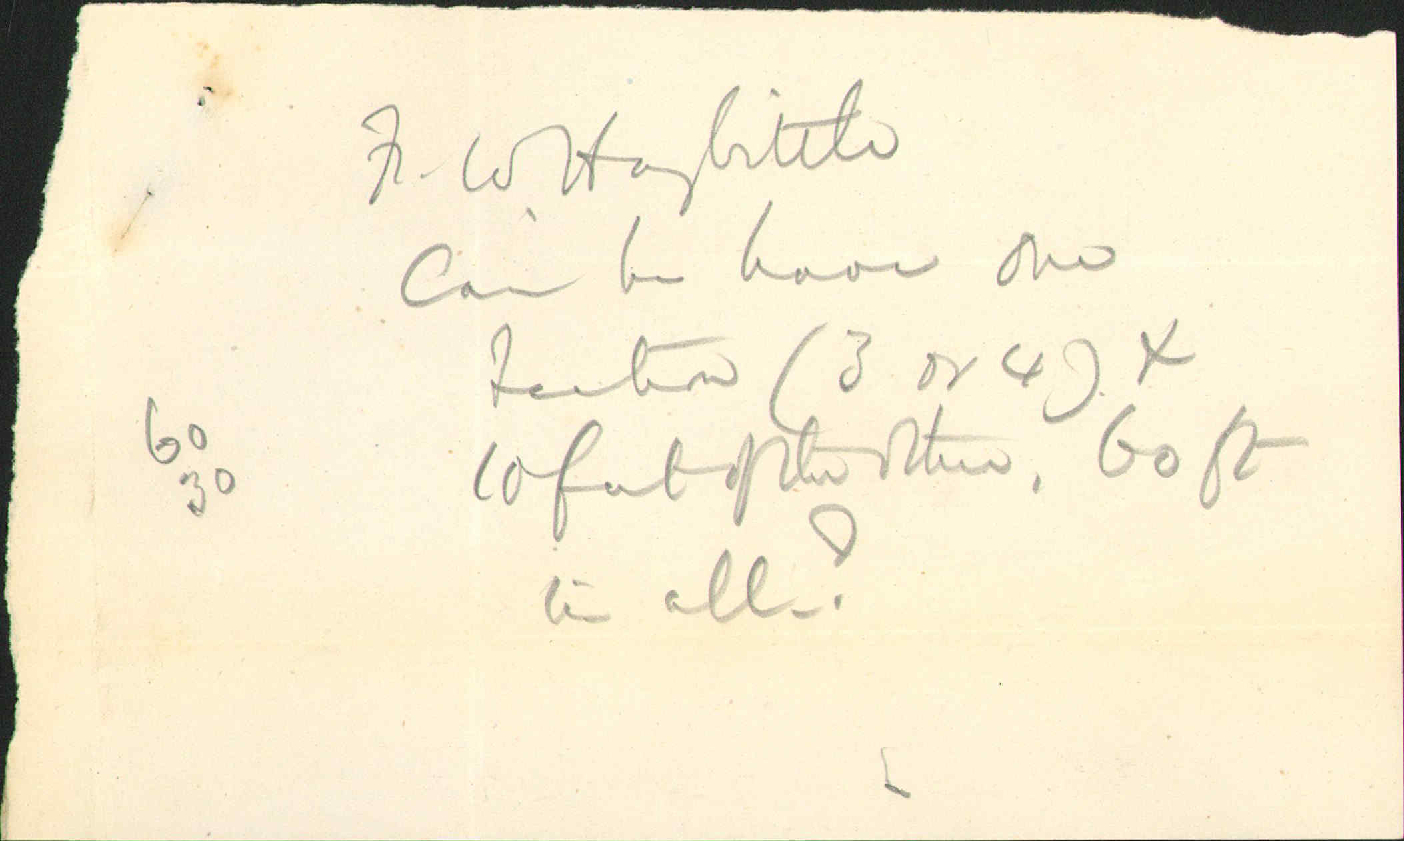 Fr. W Haybittle
Can he have one
Section (3 or 4) &
10 feet of the other, 60 ft
in all?
60
30